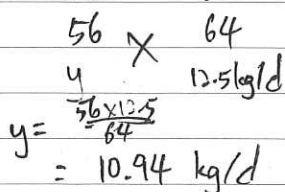 56 X 64
y 12.5kg/d
y = 56x12.5
64
= 10.94 kg/d